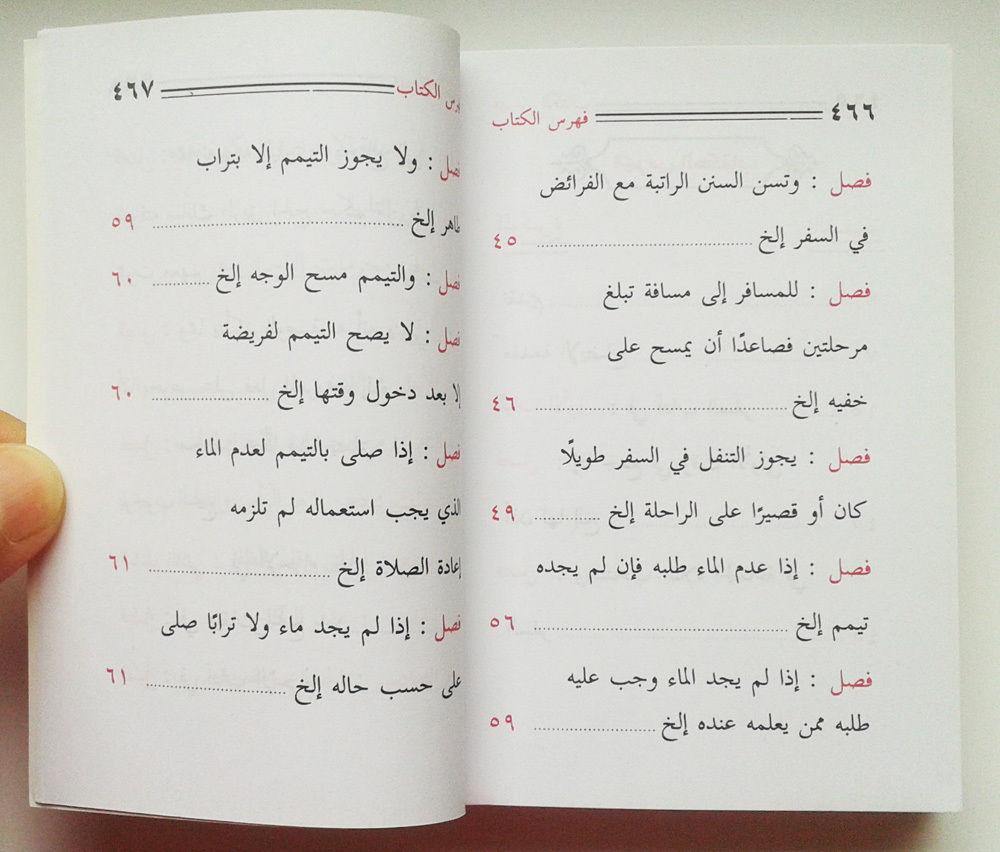 ٤٦٦ فهرس الكتاب
فصل : وتسن السنن الراتبة مع الفرائض
في السفر إلخ ................ ٤٥
فصل : للمسافر إلى مسافة تبلغ
مرحلتين فصاعدًا أن يمسح على
خفيه إلخ ................ ٤٦
فصل : يجوز التنفل في السفر طويلًا
كان أو قصيرًا على الراحلة إلخ ........ ٤٩
فصل : إذا عدم الماء طلبه فإن لم يجده
تيمم إلخ ................ ٥٦
فصل : إذا لم يجد الماء وجب عليه
طلبه ممن يعلمه عنده إلخ ............ ٥٩
فهرس الكتاب ٤٦٧
فصل : ولا يجوز التيمم إلا بتراب
طاهر إلخ ................ ٥٩
فصل : والتيمم مسح الوجه إلخ ........ ٦٠
فصل : لا يصح التيمم لفريضة
إلا بعد دخول وقتها إلخ ............ ٦٠
فصل : إذا صلى بالتيمم لعدم الماء
الذي يجب استعماله لم تلزمه
إعادة الصلاة إلخ ................ ٦١
فصل : إذا لم يجد ماء ولا ترابًا صلى
على حسب حاله إلخ ............ ٦١